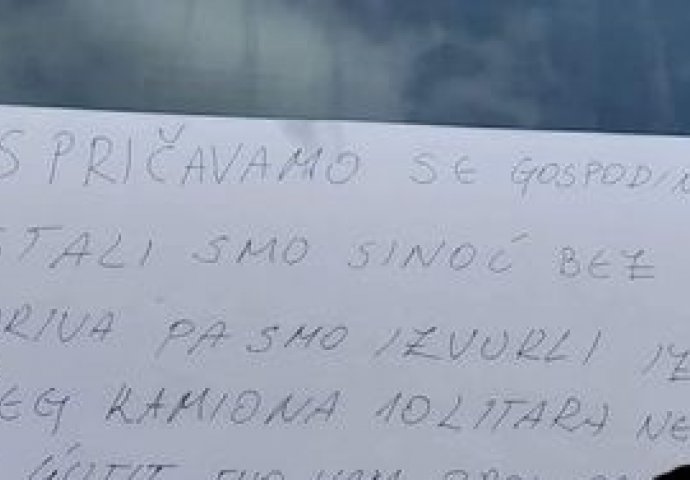 SPRIČAVAMO SE GOSPODIN
STALI SMO SINOĆ BEZ
RIVA PA SMO IZVURLI IZ
EG KAMIONA 10 LITARA NE